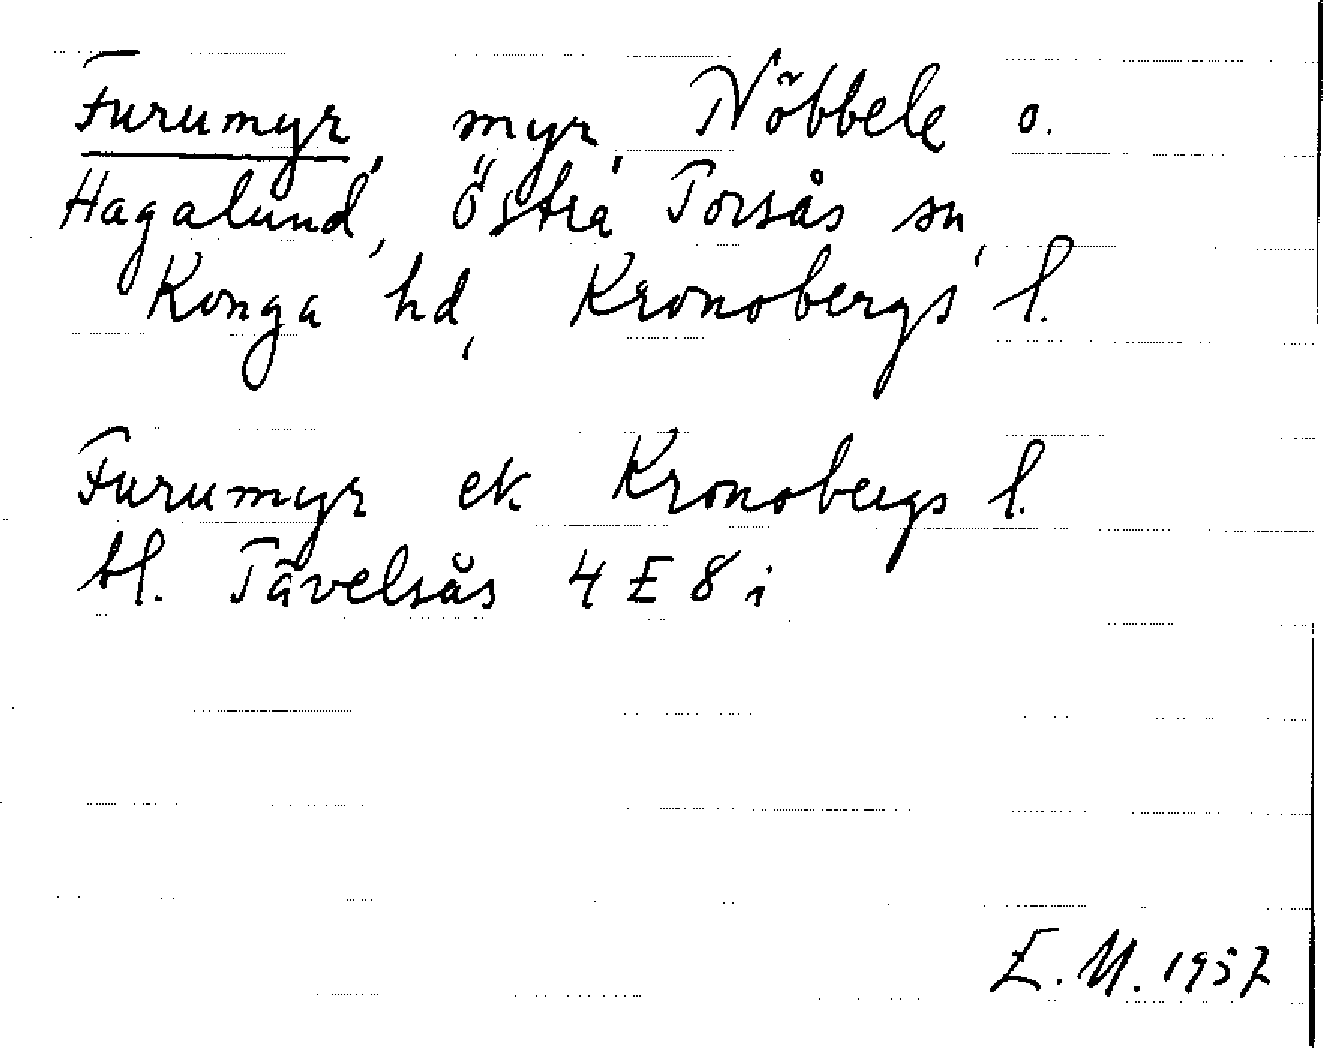 Furumyr, myr, Nöbbele o.
Hagalund, Östra Torsås sn,
Konga hd, Kronobergs l.
Furumyr ek Kronobergs l.
bl. Tävelsås 4 E 8 i
E.M. 1957